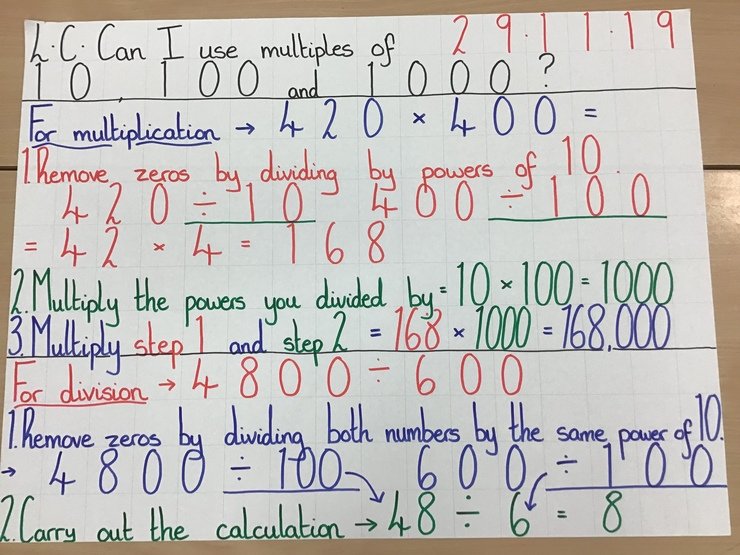 L.C. Can I use multiples of 29.11.19
10, 100 and 1000?
For multiplication → 420 × 400 =
1. Remove zeros by dividing by powers of 10.
420 ÷ 10 400 ÷ 100
= 42 × 4 = 168
2. Multiply the powers you divided by = 10 × 100 = 1000
3. Multiply step 1 and step 2 = 168 × 1000 = 168,000
For division → 4800 ÷ 600
1. Remove zeros by dividing both numbers by the same power of 10.
→ 4800 ÷ 100 600 ÷ 100
2. Carry out the calculation → 48 ÷ 6 = 8